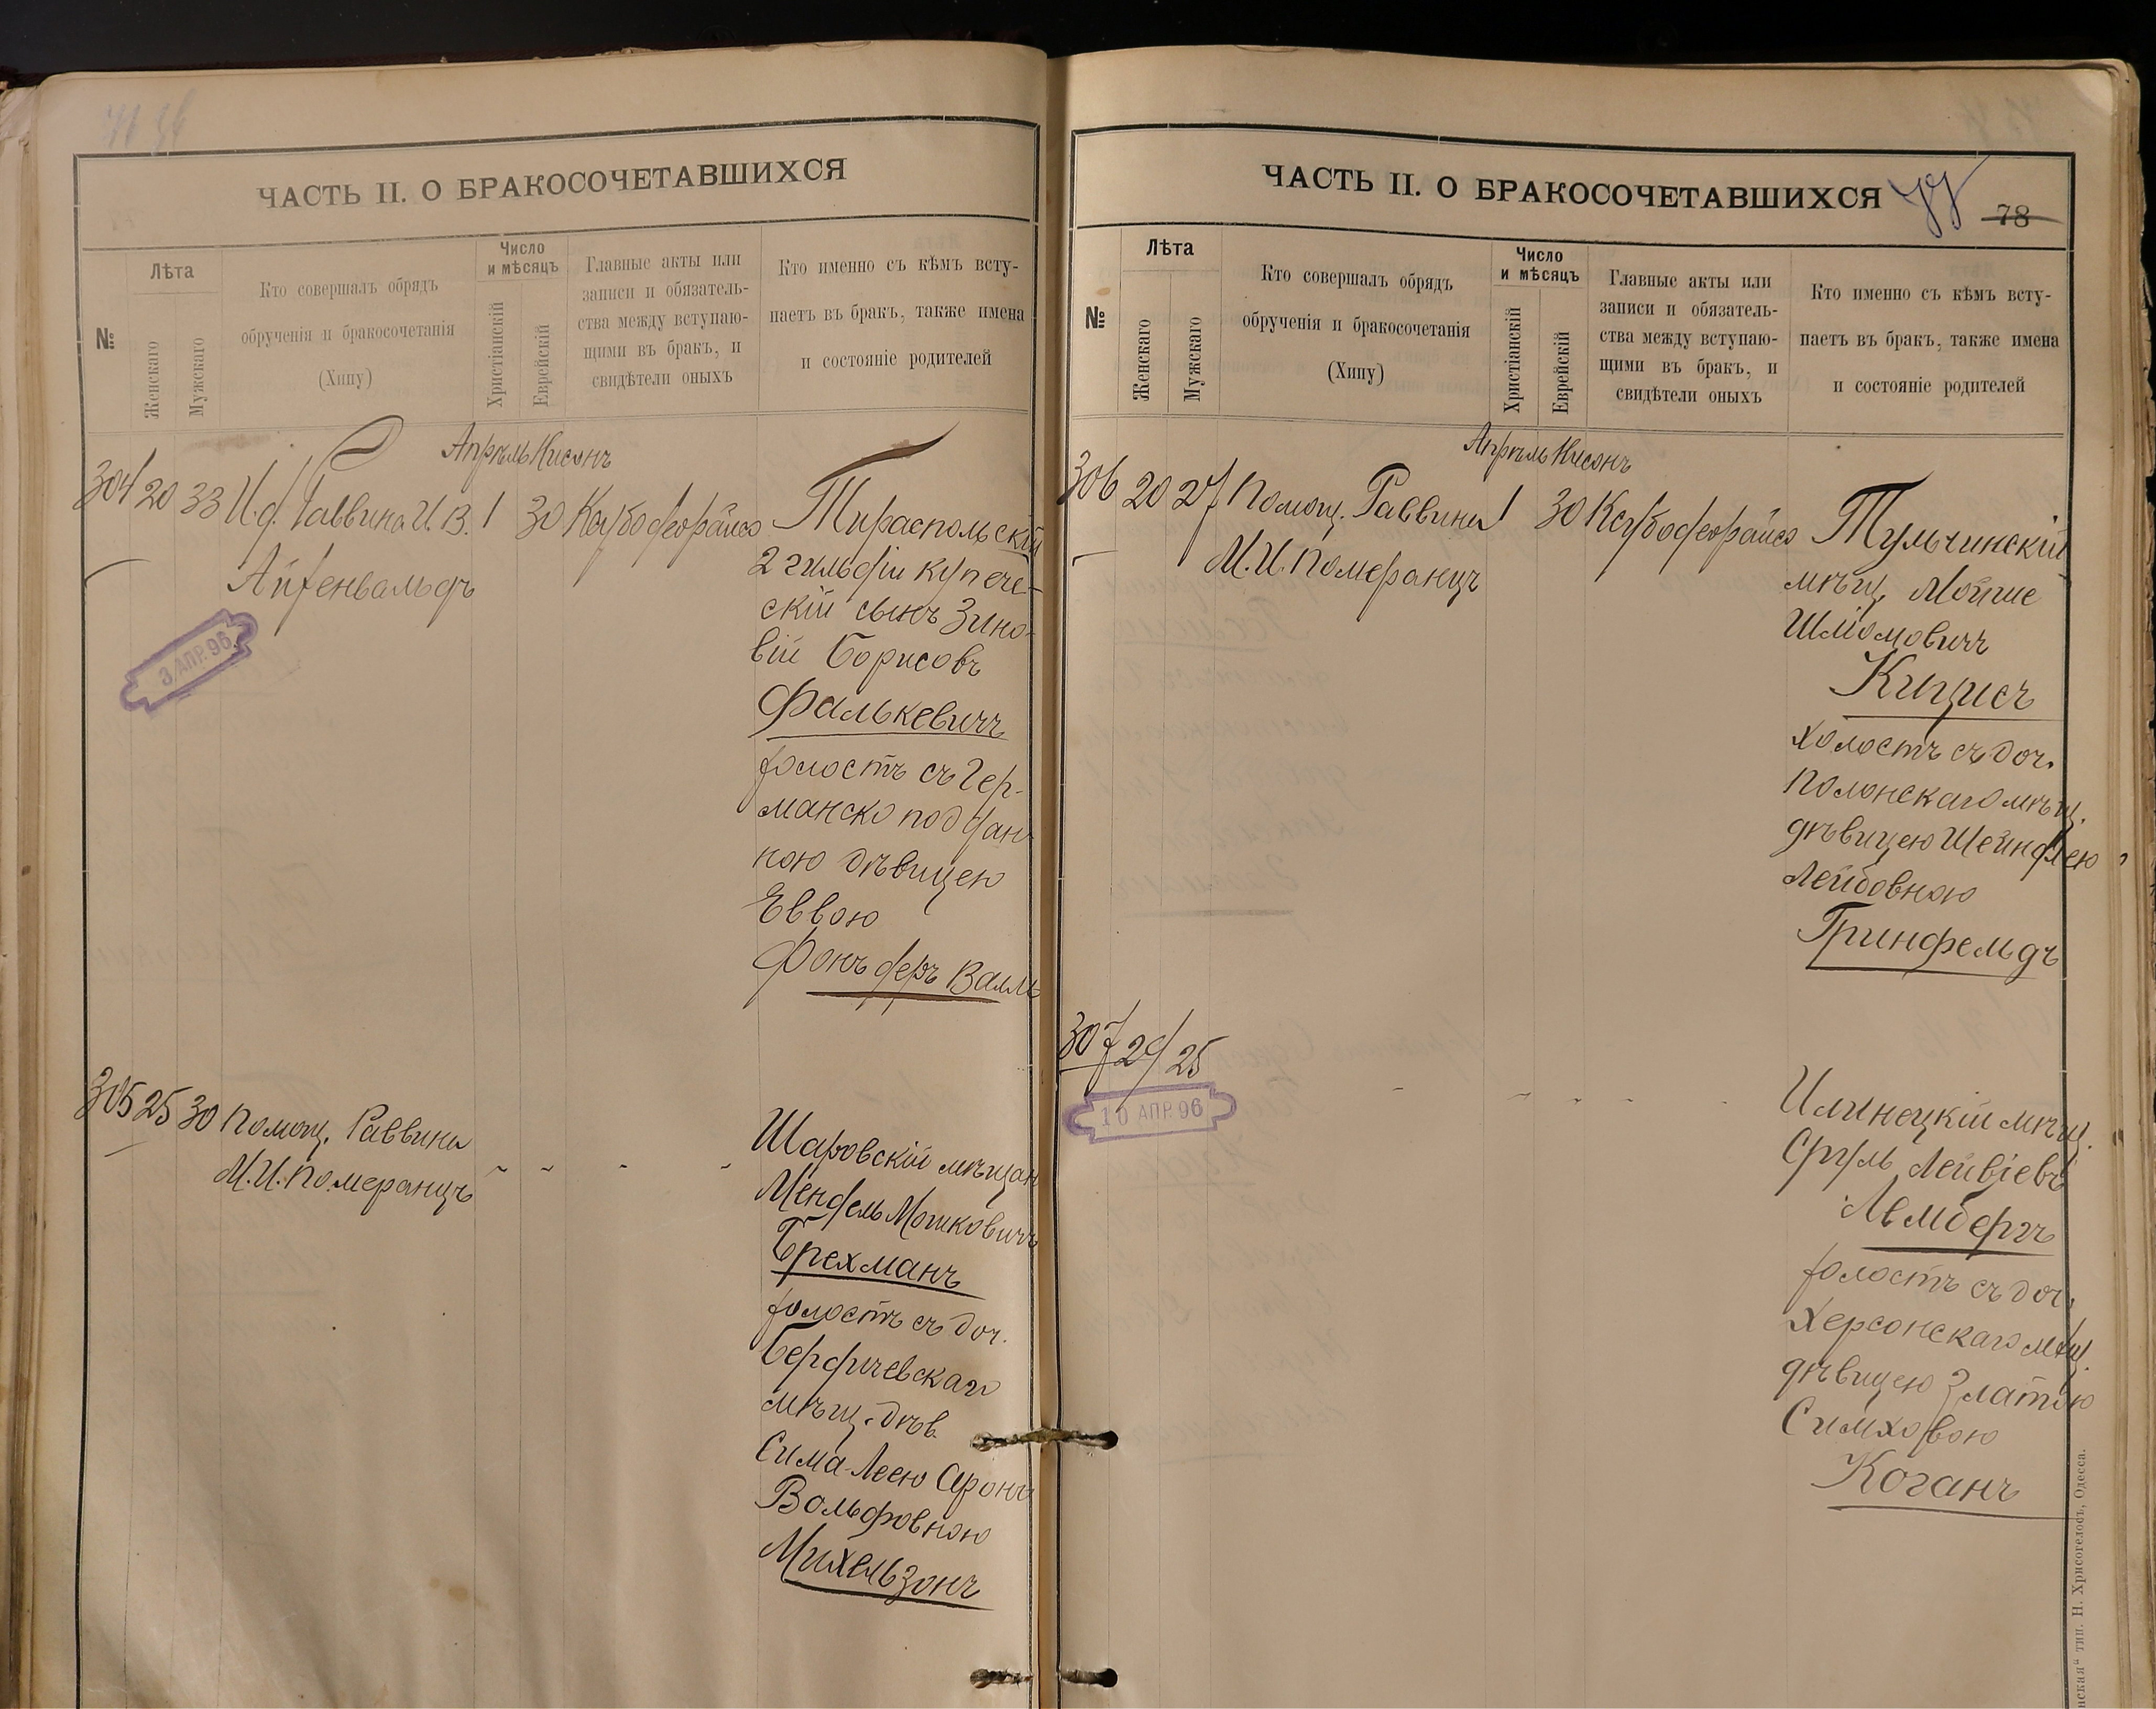 ЧАСТЬ II. О БРАКОСОЧЕТАВШИХСЯ
№
Лѣта
Женскаго
Мужскаго
Кто совершалъ обрядъ
обрученія и бракосочетанія
(Хипу)
Число
и мѣсяцъ
Христіанскій
Еврейскій
Главные акты или
записи и обязатель-
ства между вступаю-
щими въ бракъ, и
свидѣтели оныхъ
Кто именно съ кѣмъ всту-
паетъ въ бракъ, также имена
и состояніе родителей
Апрѣль Нисонъ
304 20 33 И.д. Раввина И. В. 1 30
Айхенвальдъ
3 АПР. 96
Тираспольскій
2 гильдіи купече-
скій сынъ Зино-
вій Борисовъ
Фалькевичъ
холостъ съ Гер-
манско поддан
ною дѣвицею
Еввою
Фонъ деръ Валль
305 25 30 Помощ. Раввина
М. И. Померанцъ
Шаровскій мѣщан
Мендель Мошковичъ
Брехманъ
холостъ съ доч.
Бердичевскаго
мѣщ. дѣв.
Сима-Леею Аронъ
Вольфовною
Михельзонъ
ЧАСТЬ II. О БРАКОСОЧЕТАВШИХСЯ
78
№
Лѣта
Женскаго
Мужскаго
Кто совершалъ обрядъ
обрученія и бракосочетанія
(Хипу)
Число
и мѣсяцъ
Христіанскій
Еврейскій
Главные акты или
записи и обязатель-
ства между вступаю-
щими въ бракъ, и
свидѣтели оныхъ
Кто именно съ кѣмъ всту-
паетъ въ бракъ, также имена
и состояніе родителей
Апрѣль Нисонъ
306 20 27 Помощ. Раввина 1 30
М. И. Померанцъ
Тульчинскій
мѣщ. Мойше
Шліомовичъ
Кицисъ
холостъ съ доч.
Полонскаго мѣщ.
дѣвицею Шейндлею
Лейбовною
Гринфельдъ
307 25
10 АПР. 96
Илинецкій мѣщ.
Сруль Лейвіевъ
Лембергъ
холостъ съ доч.
Херсонскаго мѣщ.
дѣвицею Златою
Симховою
Коганъ
тип. Н. Хрисогелосъ, Одесса.